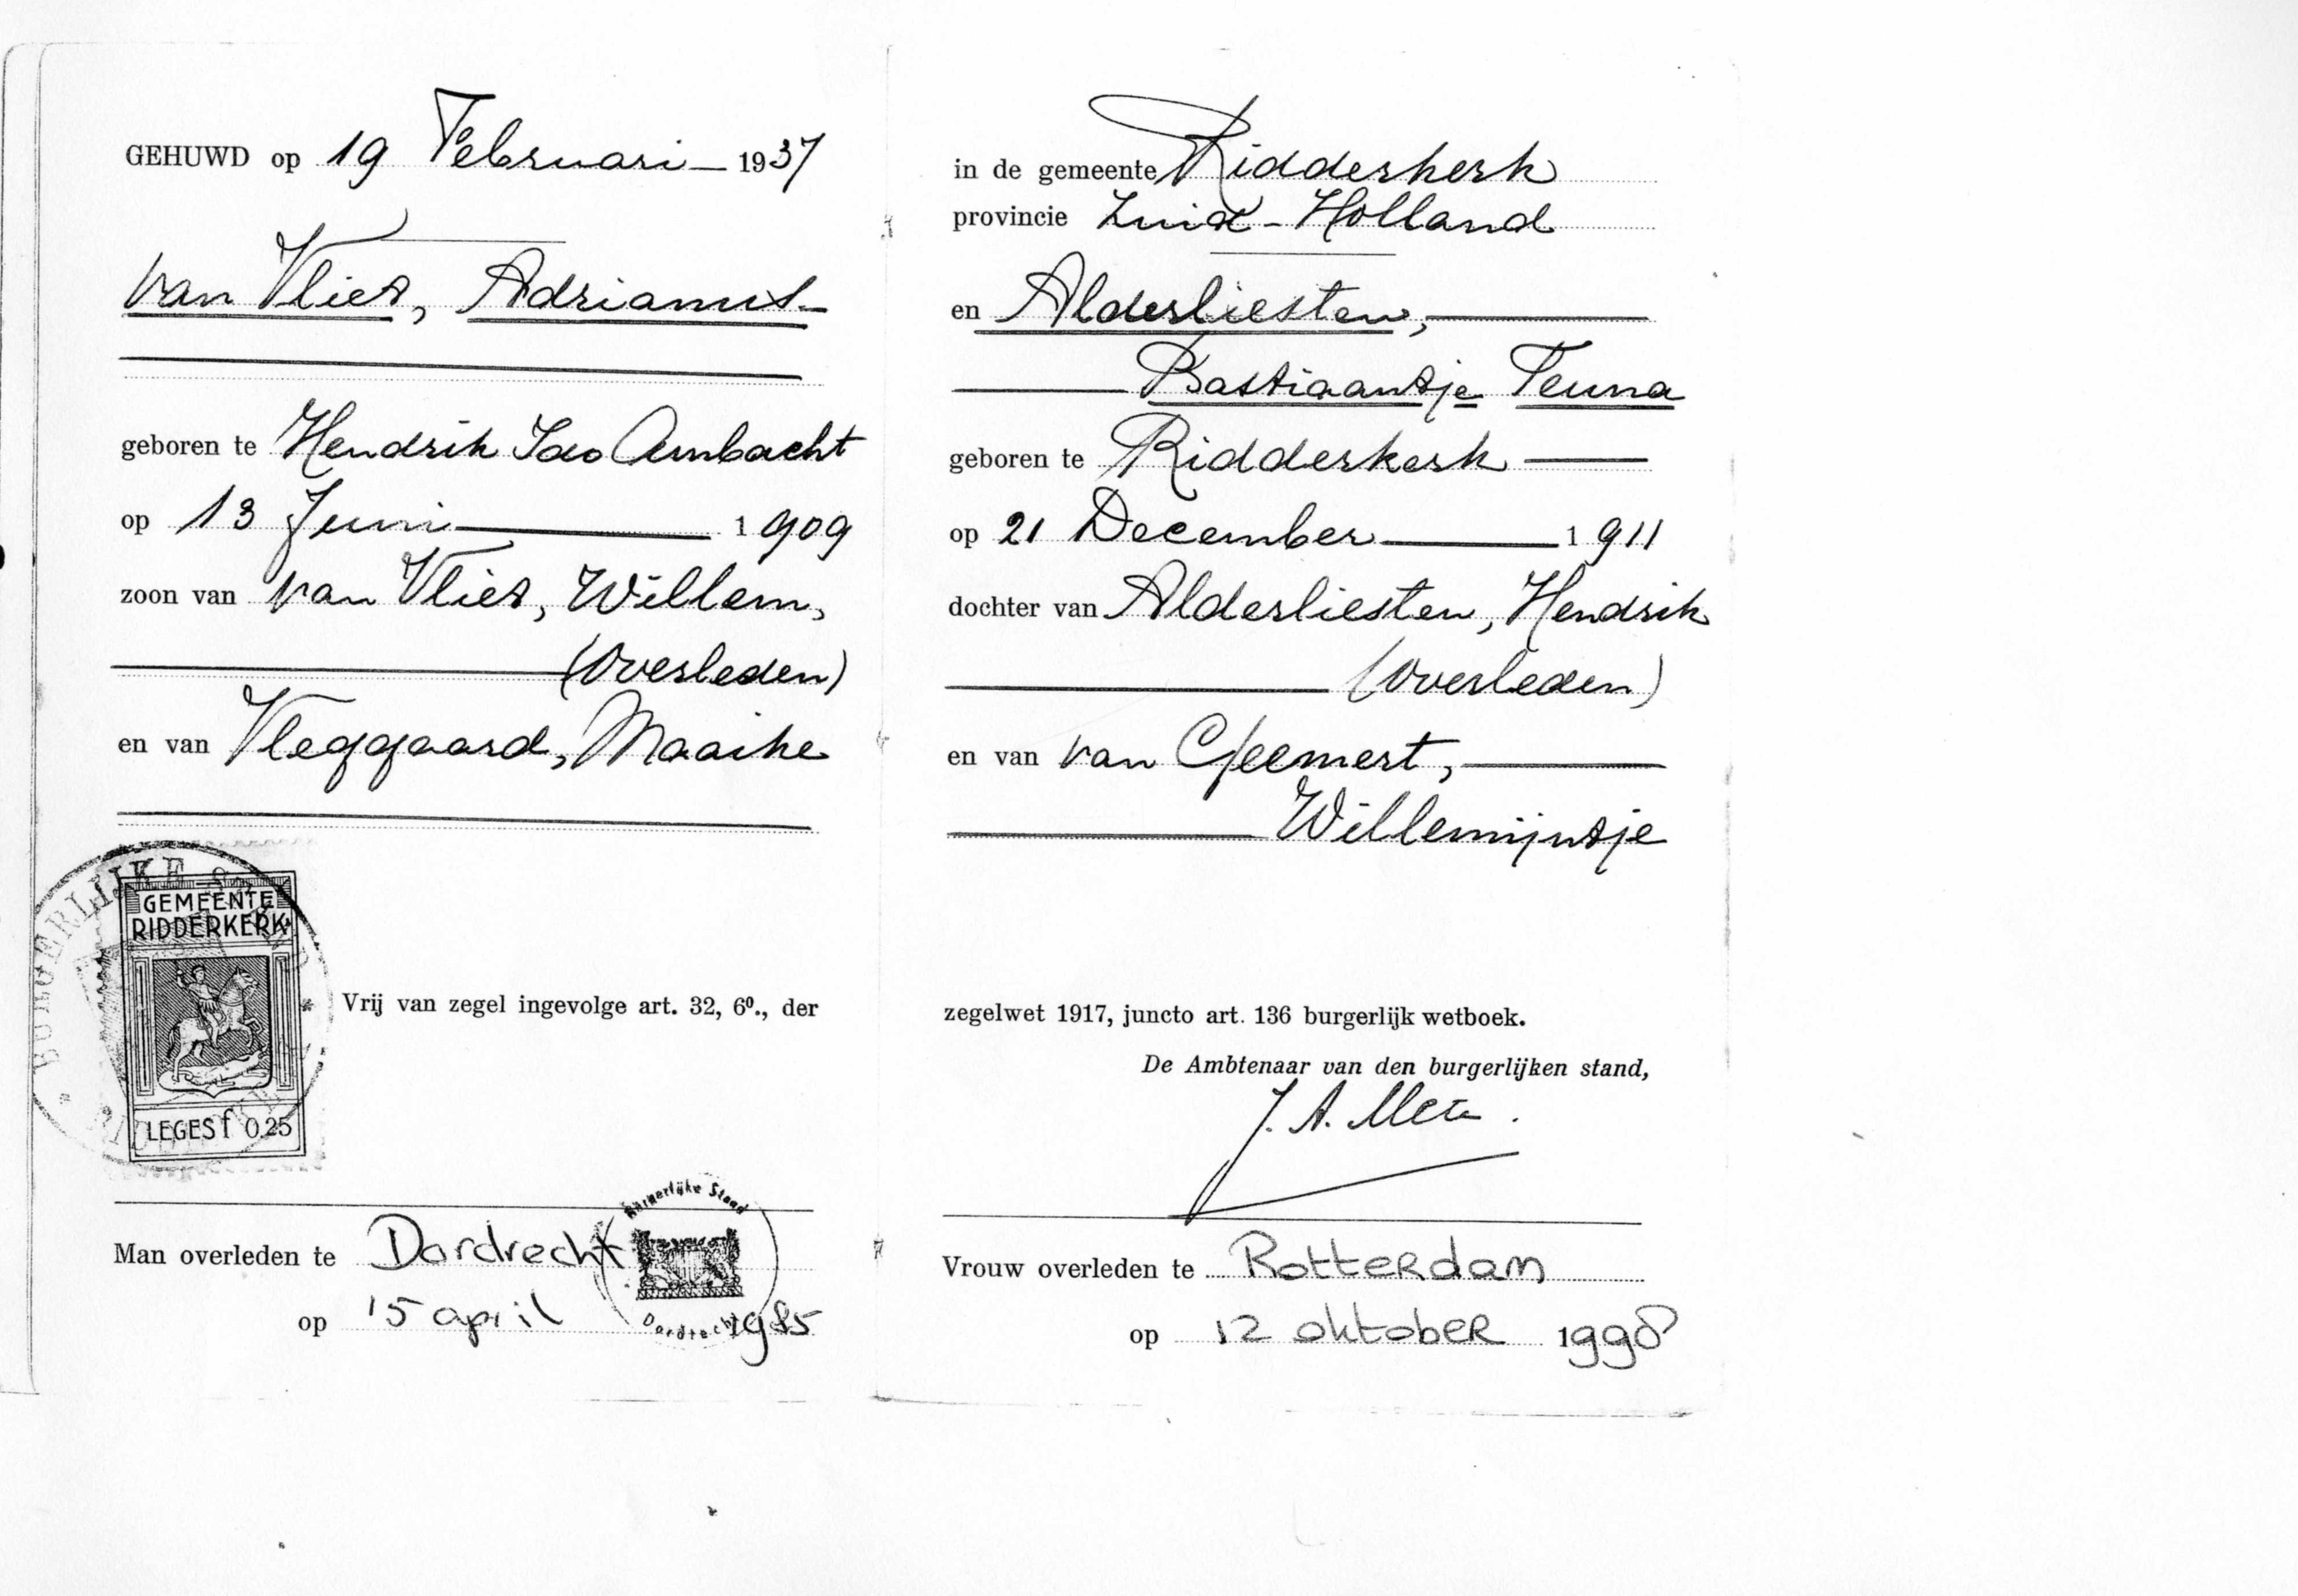 GEHUWD op 19 Februari 1937
van Vliet, Adrianus
geboren te Hendrik Ido Ambacht
op 13 Juni 1909
zoon van van Vliet, Willem,
(overleden)
en van Vleggaard, Maaike
BURGERLIJKE
GEMEENTE
RIDDERKERK
LEGES f 0.25
Vrij van zegel ingevolge art. 32, 6º., der
Man overleden te Dordrecht
op 15 april 1985
Burgerlijke Stand
Dordrecht
in de gemeente Ridderkerk
provincie Zuid-Holland
en Alderliesten,
Bastiaantje Teuna
geboren te Ridderkerk
op 21 December 1911
dochter van Alderliesten, Hendrik
(overleden)
en van van Gemert,
Willemijntje
zegelwet 1917, juncto art. 136 burgerlijk wetboek.
De Ambtenaar van den burgerlijken stand,
J. A.
Vrouw overleden te Rotterdam
op 12 oktober 1998